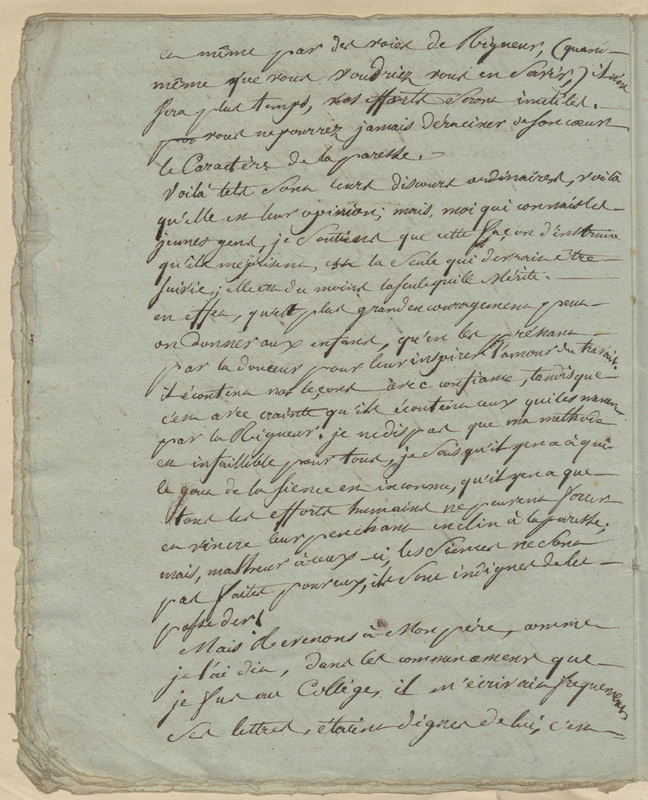 et même par des voies de Rigueur, (quand
même que vous voudriez vous en Servir,) il n'en
Sera plus temps, vos efforts Seront inutiles.
vous ne pourrez jamais deraciner de Son cœur
le Caractère de la paresse. -
Voilà tels Sont leurs discours ordinaires, voilà
qu'elle est leur opinion; mais, moi qui connais les
jeunes gens, je Soutiens que cette façon d'instruire
qu'ils méprisent, est la Seule qui devrait être
Suivie; elle est du moins la seule qui le Mérite.
en effet, quest plus grand encouragement peut
on donner aux enfans, qu'en les prenant
par la douceur pour leur inspirer l'amour du travail.
il écoutent nos leçons avec confiance, tandis que
c'est avec crainte qu'ils écoutent ceux qui les menent
par la Rigueur. je ne dis pas que ma methode
est infaillible pour tous, je Sais qu'il y en a à qui
le gout de la sience est inconnu, qu'il y en a que
tous les efforts humains ne peuvent forcer
et vincre leur penchant inclin à la paresse;
mais, malheur à ceux-ci, les Siences ne Sont
pas faites pour eux, ils Sont indignes de les
posseder!
Mais Revenons à Mon père, comme
je l'ai dit, dans les commencemens que
je fus au Collège, il m'écrivait frequemment
Ses lettres, étaient dignes de lui, c'est